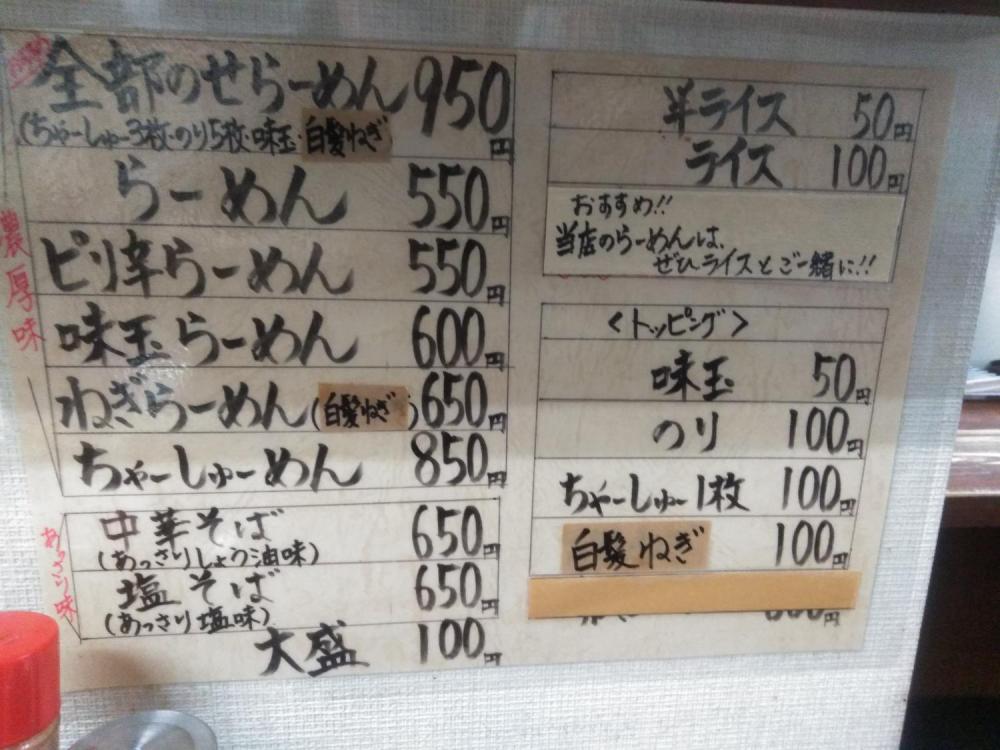 全部のせらーめん 950円
(ちゃーしゅー3枚・のり5枚・味玉・白髪ねぎ)
らーめん 550円
濃厚味
ピリ辛らーめん 550円
味玉らーめん 600円
ねぎらーめん(白髪ねぎ) 650円
ちゃーしゅーめん 850円
あっさり味
中華そば 650円
(あっさりしょう油味)
塩そば 650円
(あっさり塩味)
大盛 100円
半ライス 50円
ライス 100円
おすすめ!!
当店のらーめんは、
ぜひライスとご一緒に!!
<トッピング>
味玉 50円
のり 100円
ちゃーしゅー1枚 100円
白髪ねぎ 100円